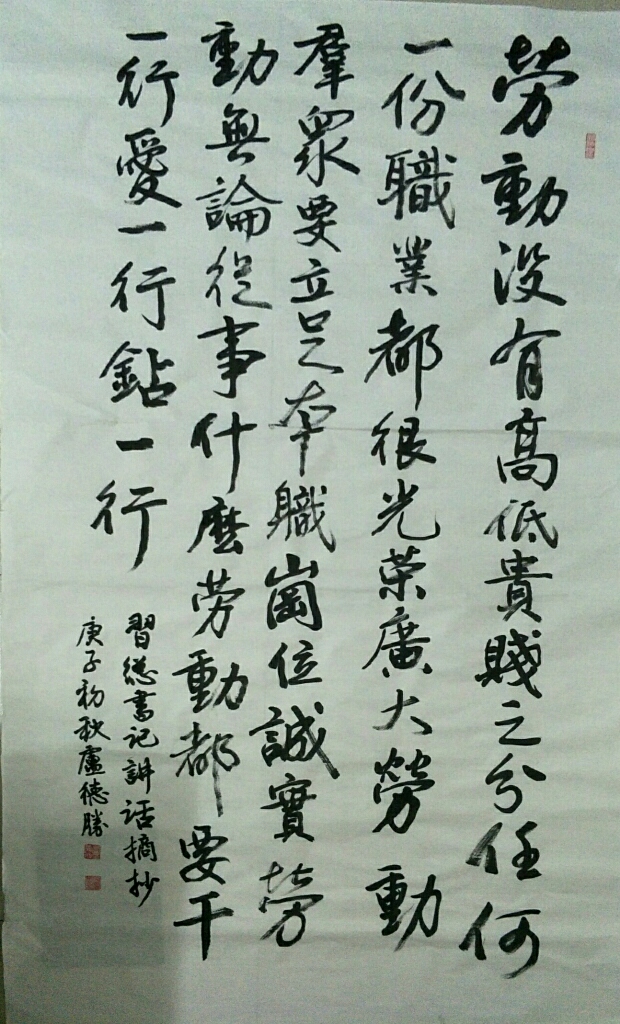 勞動没有高低貴賤之分任何
一份職業都很光荣廣大勞動
羣眾要立足本職崗位誠實勞
動無論從事什麽劳動都要干
一行愛一行鉆一行
習總書记講话摘抄
庚子初秋盧德勝